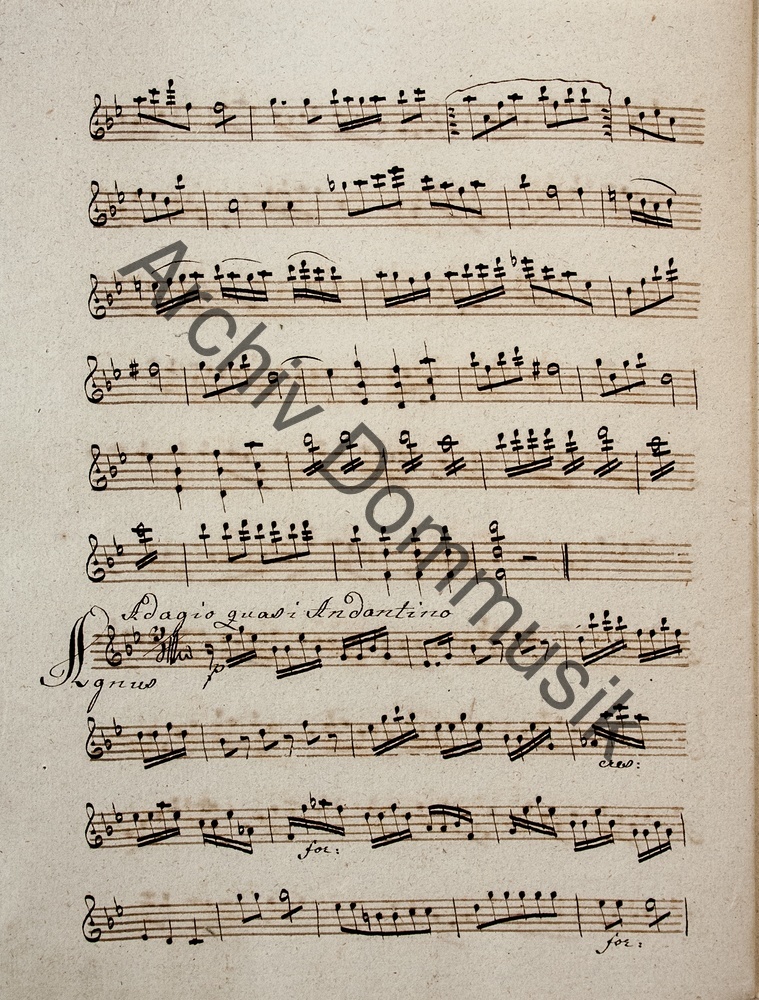 Adagio quasi Andantino
Agnus
p
cres:
for:
for:
Archiv Dommusik